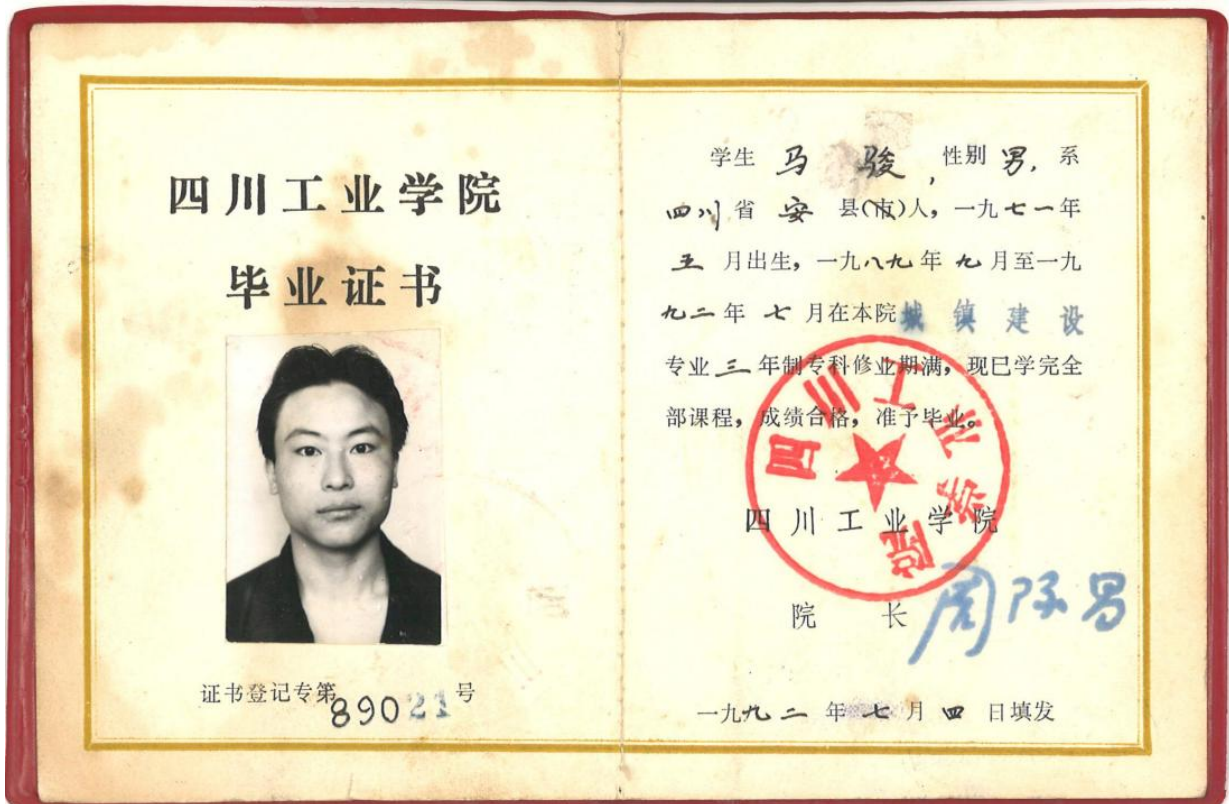 四川工业学院
毕业证书
证书登记专第89021号
学生 马 骏,性别 男,系
四川省 安 县(市)人,一九七一年
五 月出生,一九八九年 九 月至一九
九二年 七 月在本院 城 镇 建 设
专业 三 年制专科修业期满,现已学完全
部课程,成绩合格,准予毕业。
四川工业学院
四川工业学院
院 长
一九九二 年 七 月 四 日填发